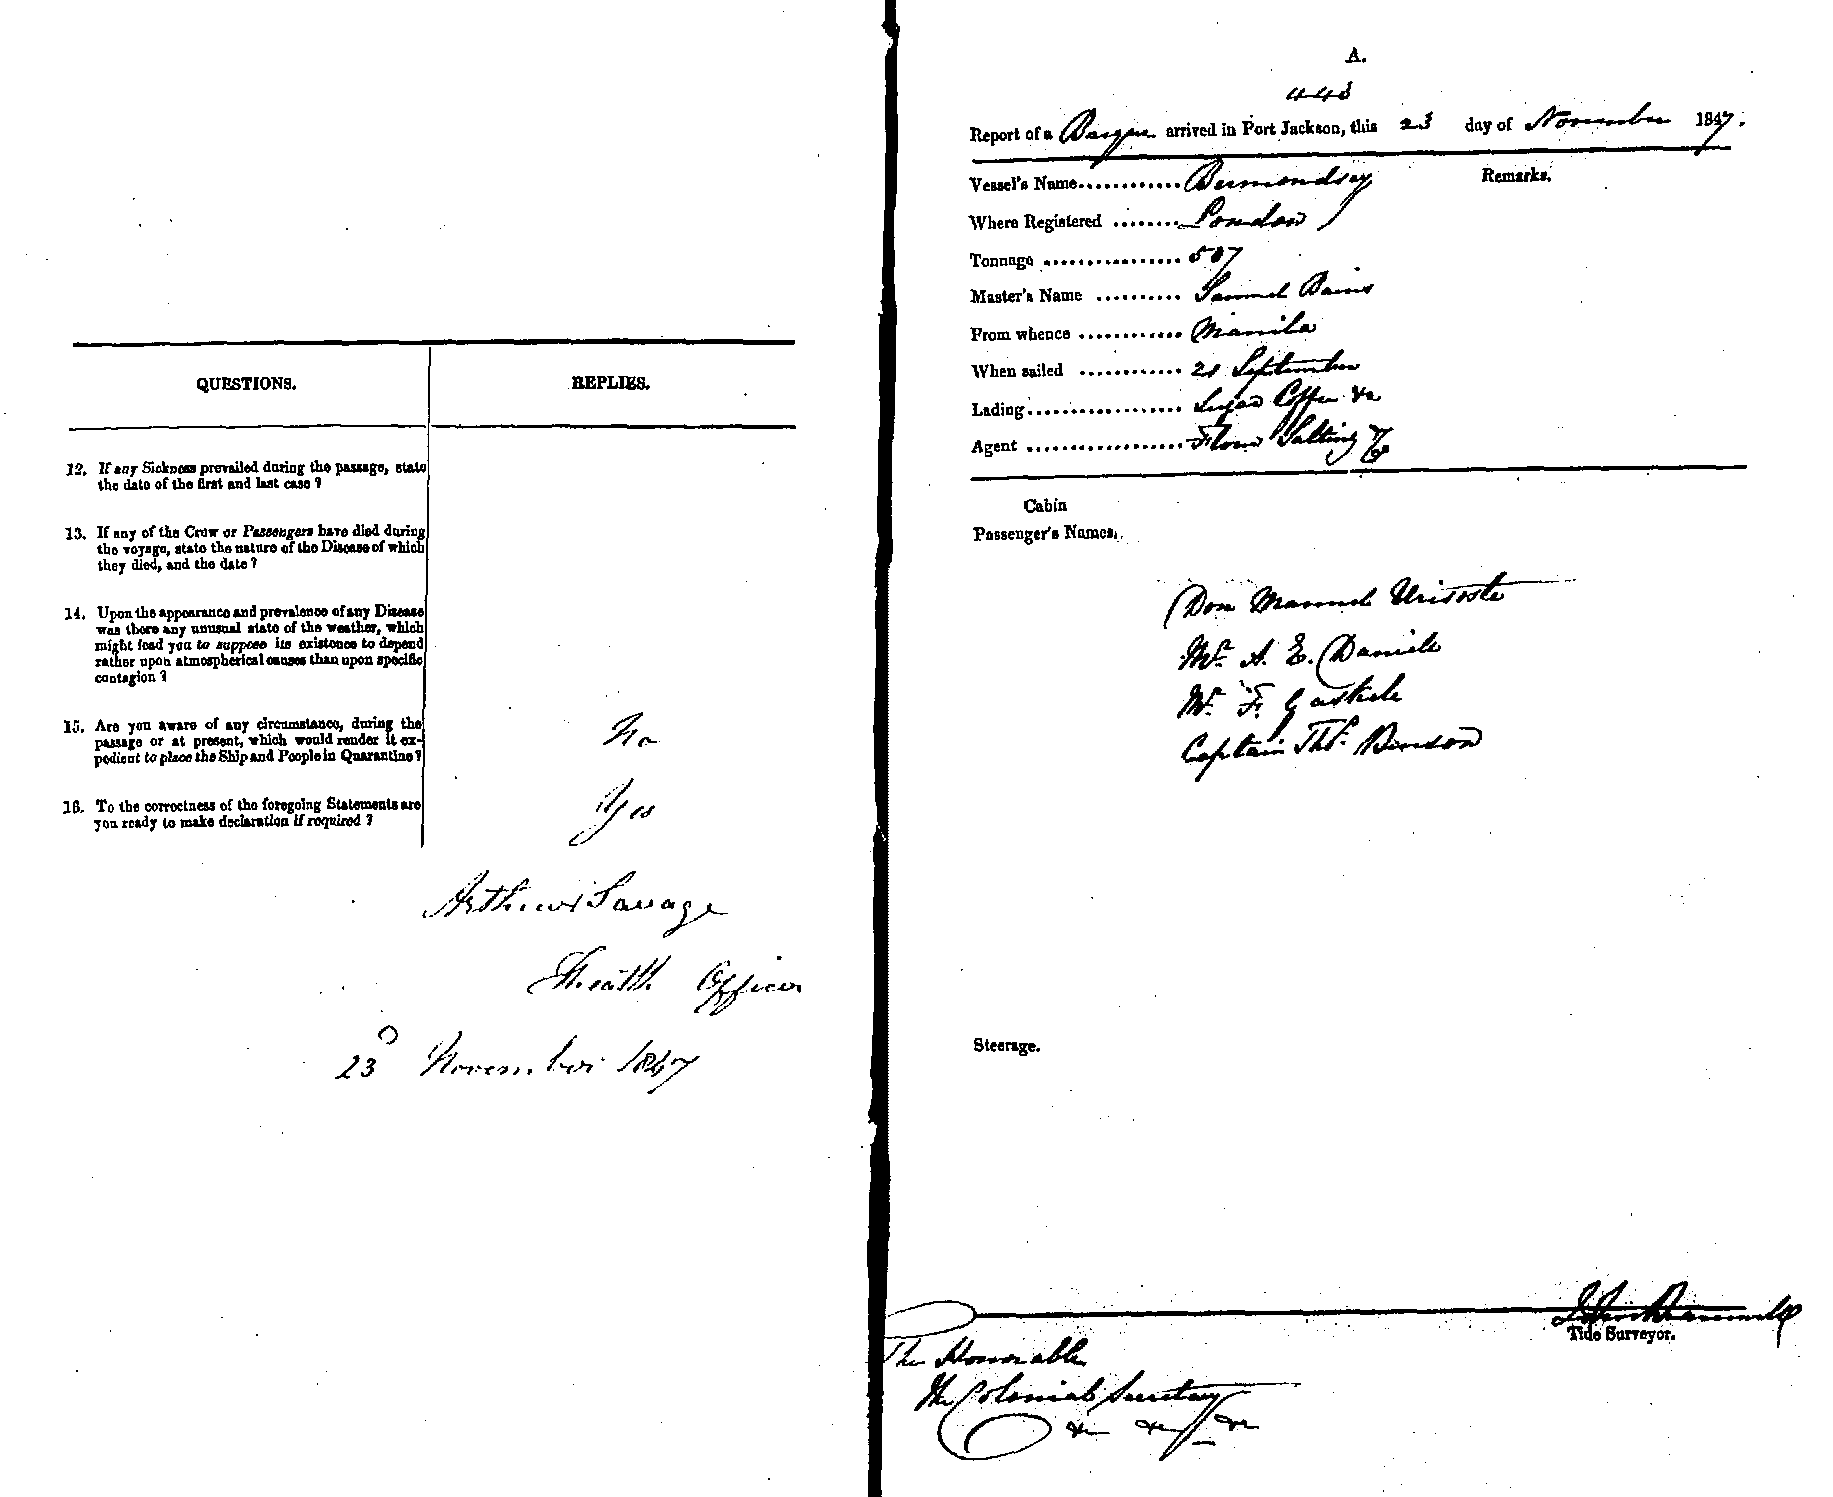 QUESTIONS.
REPLIES.
12. If any Sickness prevailed during the passage, state
the date of the first and last case ?
13. If any of the Crew or Passengers have died during
the voyage, state the nature of the Disease of which
they died, and the date ?
14. Upon the appearance and prevalence of any Disease
was there any unusual state of the weather, which
might lead you to suppose its existence to depend
rather upon atmospherical causes than upon specific
contagion ?
15. Are you aware of any circumstance, during the
passage or at present, which would render it ex-
pedient to place the Ship and People in Quarantine ?
No
16. To the correctness of the foregoing Statements are
you ready to make declaration if required ?
Yes
Arthur Savage
Health Officer
23 November 1847
A.
443
Report of a Barque arrived in Port Jackson, this 23 day of November 1847.
Vessel's Name............ Bermondsey
Remarks.
Where Registered ........ London
Tonnage ................ 507
Master's Name .......... Samuel Bains
From whence ............ Manila
When sailed ............ 21 September
Lading.................. Sugar Coffee &c
Agent .................. Flower Salting & Co
Cabin
Passenger's Names.
Don Manuel
Mr. A. E. Daniele
Mr. F. Gaskele
Captain Thos. Benson
Steerage.
Tide Surveyor.
The Honorable
The Colonial Secretary
&c &c &c